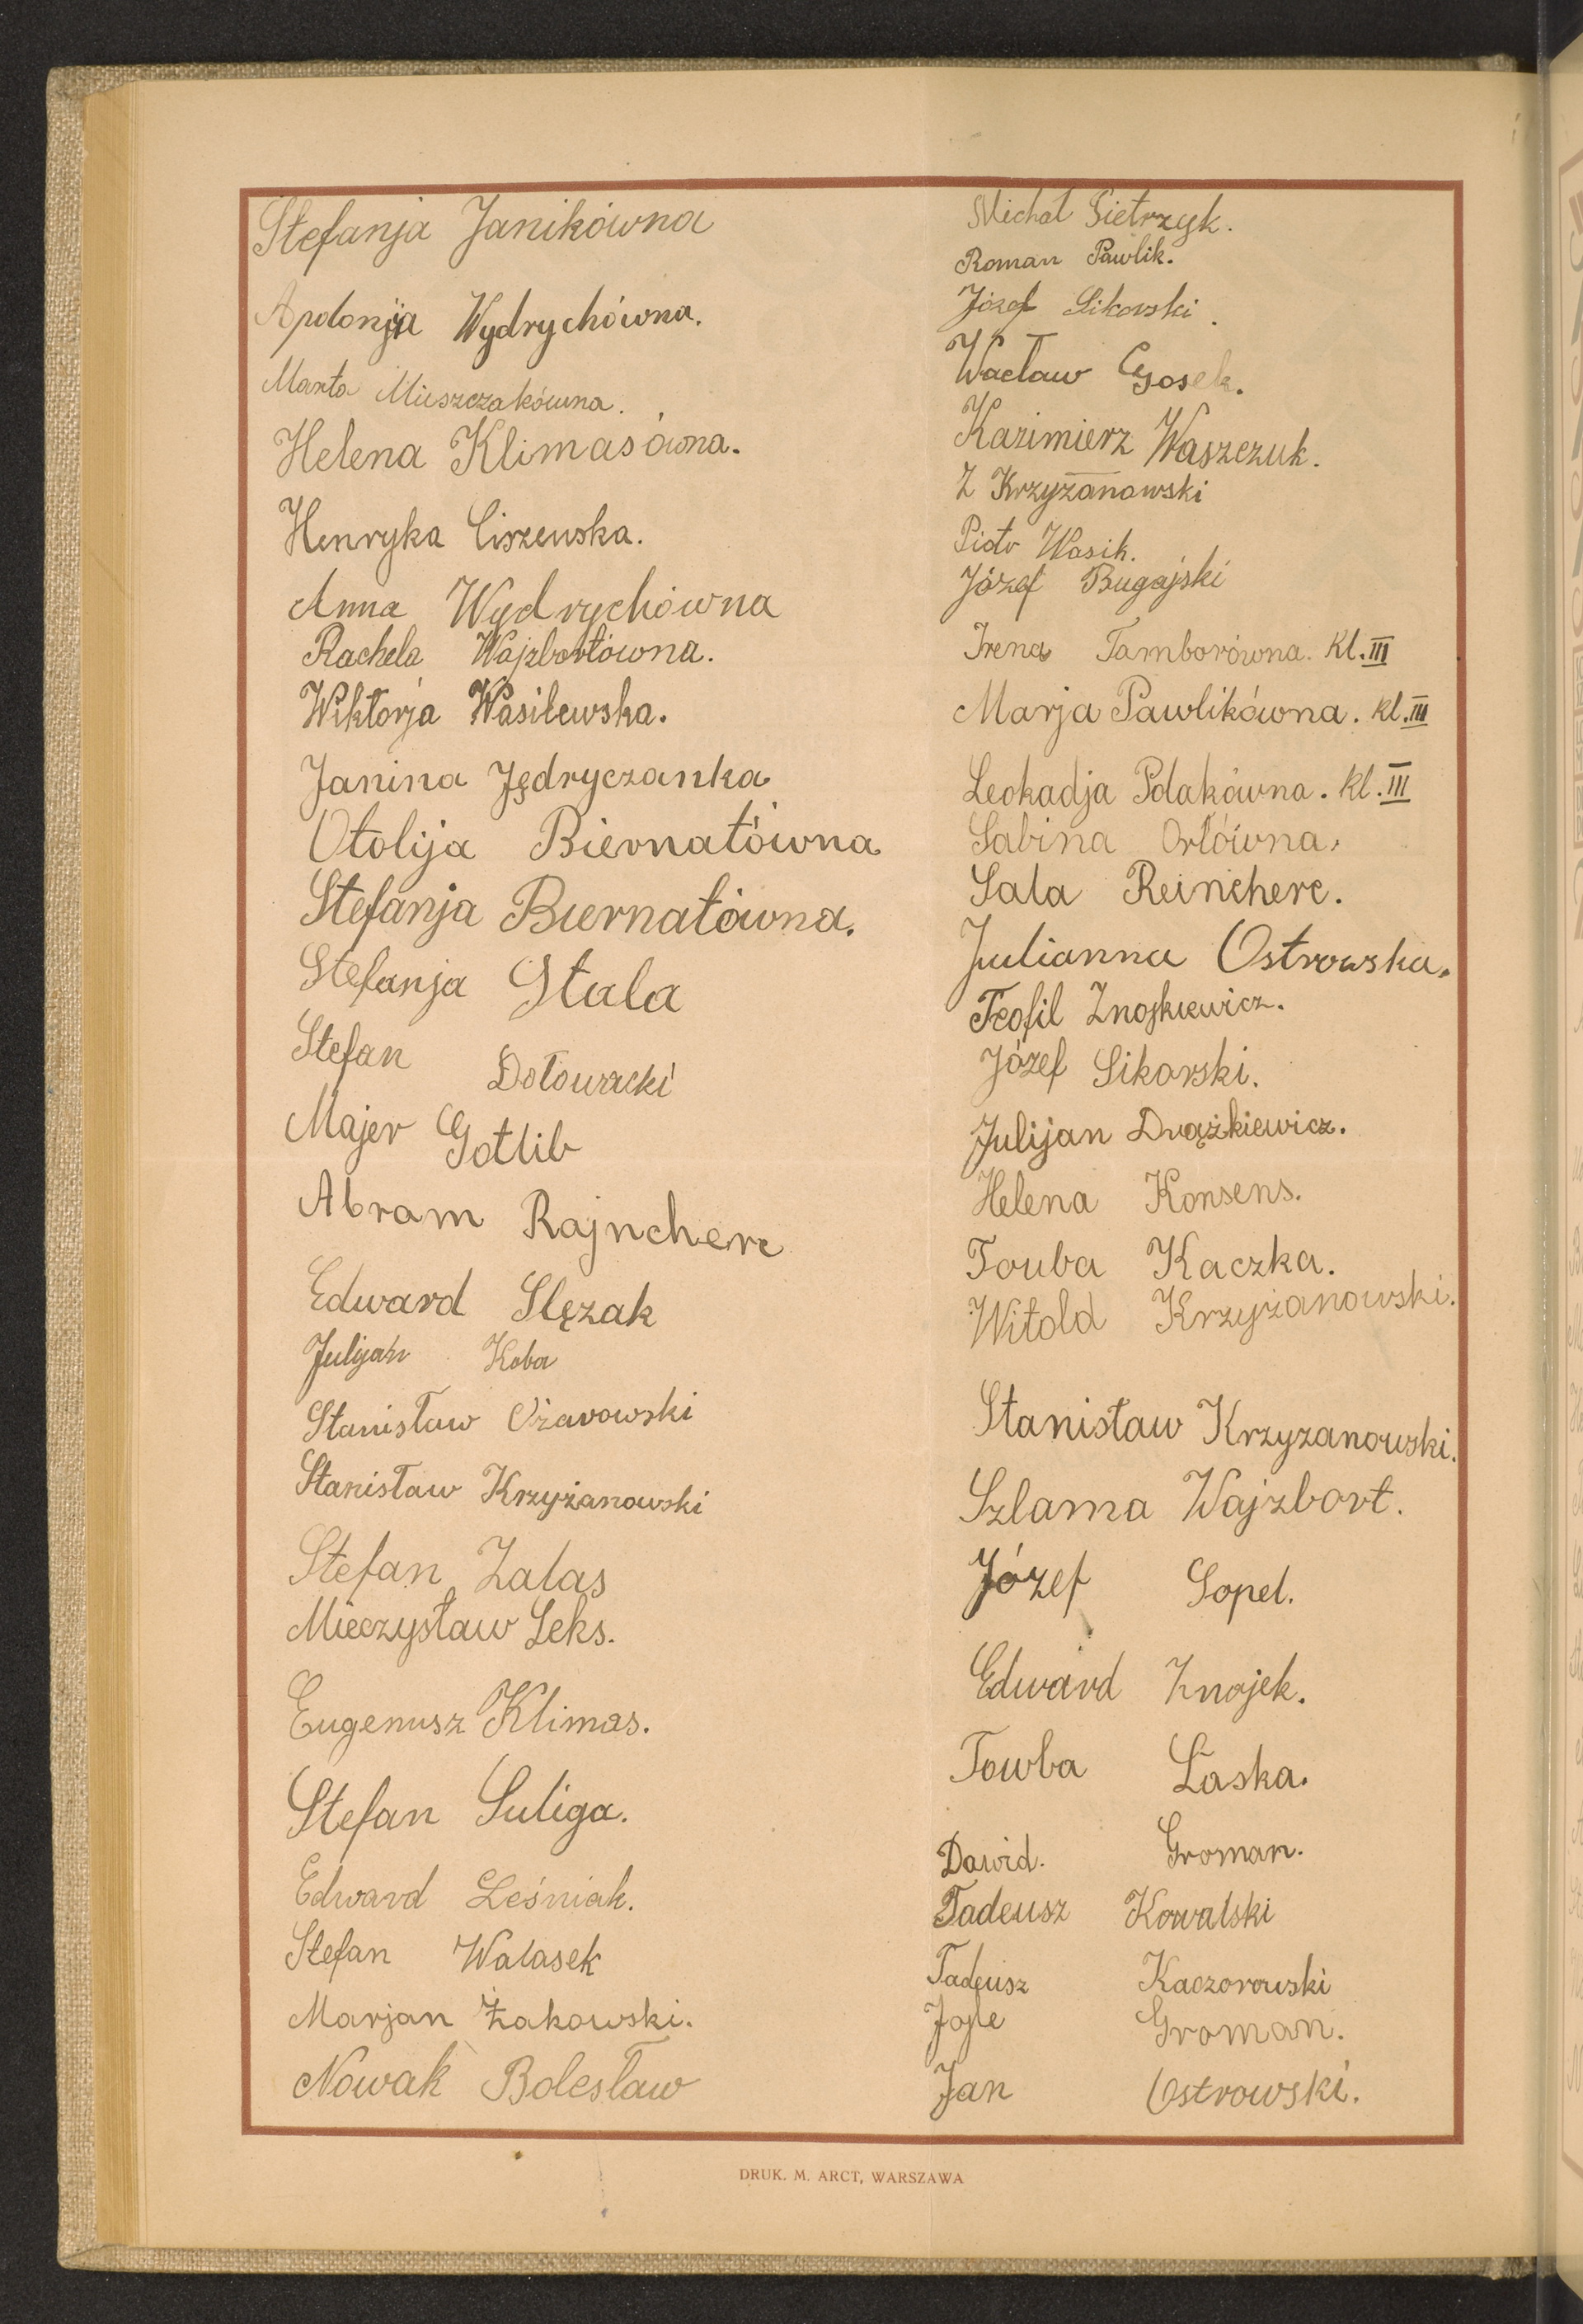 Stefanja Janikówna
Apolonja Wydrychówna.
Marta Mieszczakówna.
Helena Klimasówna.
Henryka Ciszewska.
Anna Wydrychówna
Rachela Wajzbortówna.
Wiktorja Wasilewska.
Janina Jędryczanka
Otolija Biernatówna
Stefanja Biernatówna.
Stefanja Stala
Stefan Dołowacki
Majer Gotlib
Abram Rajncherc
Edward Slęzak
Julijan Koba
Stanisław Ożarowski
Stanisław Krzyżanowski
Stefan Zalas
Mieczysław Leks.
Eugenusz Klimas.
Stefan Suliga.
Edward Leśniak.
Stefan Walasek
Marjan Żakowski.
Nowak Bolesław
Michał Pietrzyk.
Roman Pawlik.
Józef Sikorski.
Wacław Gosek.
Kazimierz Waszczuk.
Z Krzyżanowski
Piotr Wasik.
Józef Bugajski
Irena Tamborówna. Kl. III
Marja Pawlikówna. kl. III
Leokadja Polakówna. Kl. III
Sabina Orłówna.
Sala Reincherc.
Julianna Ostrowska.
Teofil Znojkiewicz.
Józef Sikorski.
Julijan Drążkiewicz.
Helena Konsens.
Touba Kaczka.
Witold Krzyżanowski.
Stanisław Krzyzanowski.
Szlama Wajzbort.
Józef Sopel.
Edward Znojek.
Towba Laska.
Dawid. Groman.
Tadeusz Kowalski
Tadeusz Kaczorowski
Jojle Groman.
Jan Ostrowski.
DRUK. M. ARCT, WARSZAWA